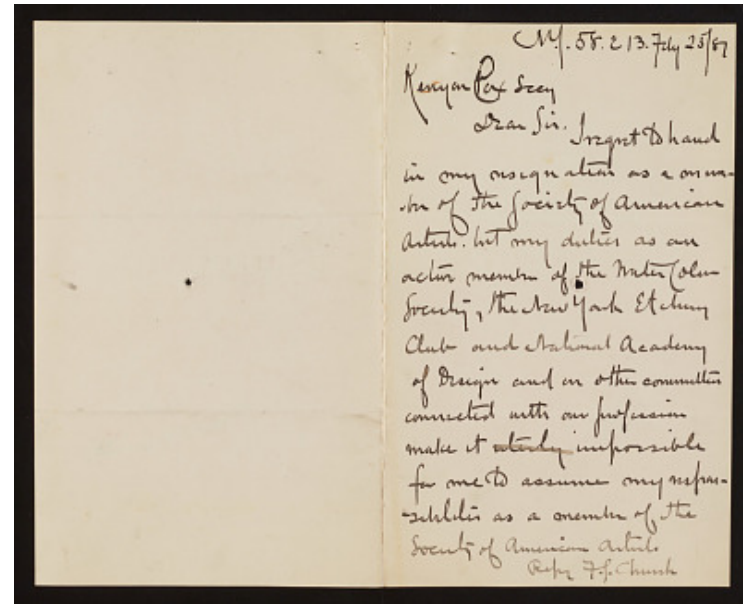 N.Y. 58. E 13. Feby 25/87
Kenyon Cox Secy
Dear Sir.
I regret to hand
in my resignation as a mem-
ber of the Society of American
Artists. but my duties as an
active member of the Water Color
Society, the New York Etching
Club and National Academy
of Design and on other committees
connected with our profession
make it uterly impossible
for me to assume my respon-
sibilities as a member of the
Society of American Artists.
Respy F.S. Church